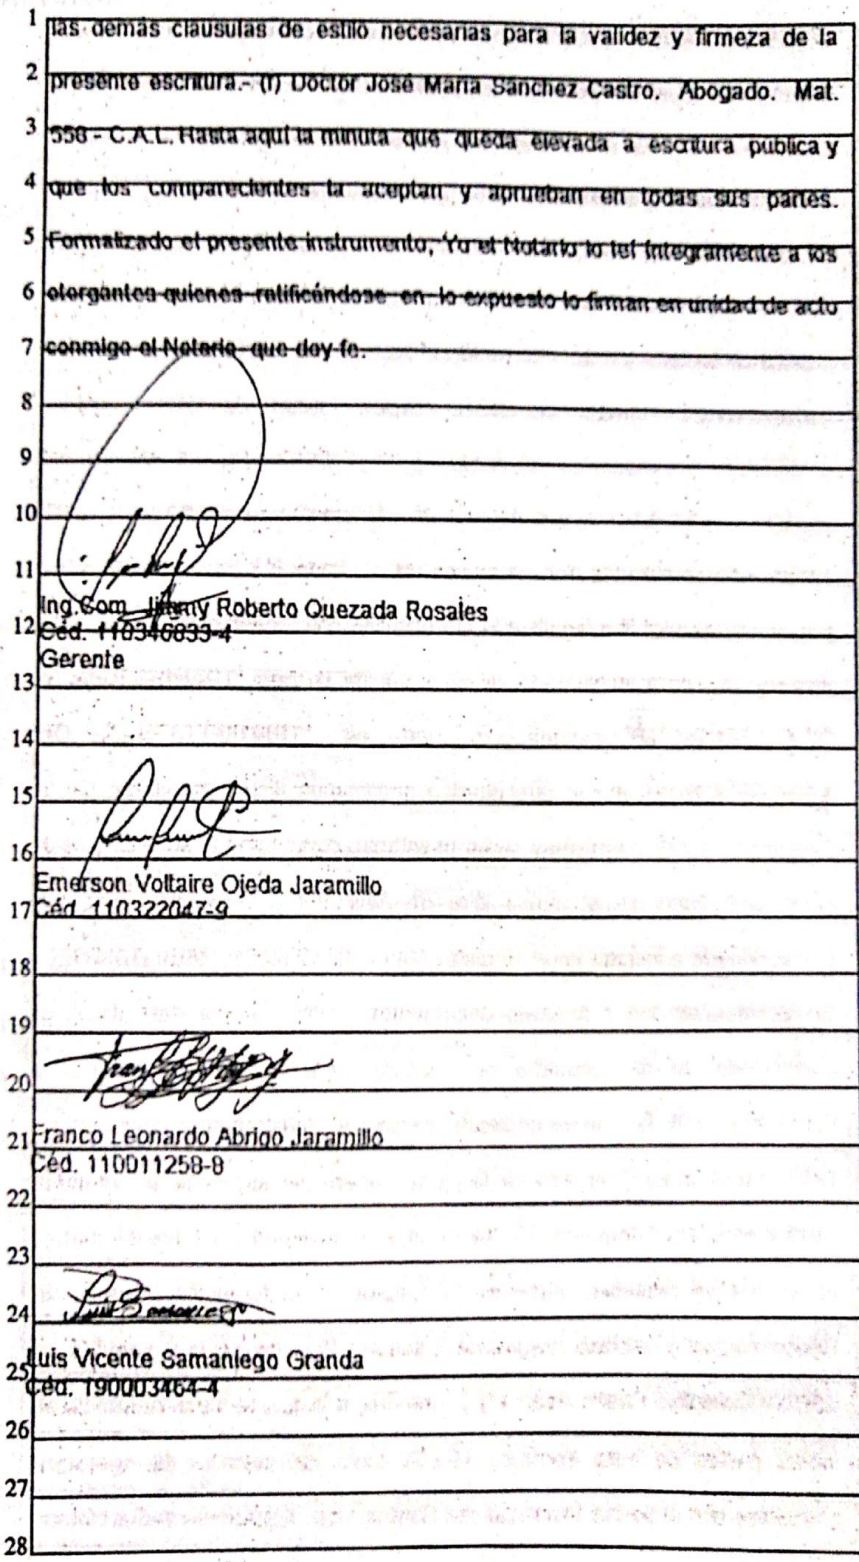 1 las demás cláusulas de estilo necesarias para la validez y firmeza de la
2 presente escritura.- (f) Doctor José María Sánchez Castro. Abogado. Mat.
3 556 - C.A.L. Hasta aquí la minuta que queda elevada a escritura pública y
4 que los comparecientes la aceptan y aprueban en todas sus partes.
5 Formalizado el presente instrumento, Yo el Notario lo leí íntegramente a los
6 otorgantes quienes ratificándose en lo expuesto lo firman en unidad de acto
7 conmigo el Notario que doy fe.
8
9
10
11
Ing.Com. Jimmy Roberto Quezada Rosales
12 Céd. 110346833-4
Gerente
13
14
15
16
Emerson Voltaire Ojeda Jaramillo
17 Céd. 110322047-9
18
19
20
21 Franco Leonardo Abrigo Jaramillo
Céd. 110011258-8
22
23
24
Luis Vicente Samaniego Granda
25 Céd. 190003464-4
26
27
28